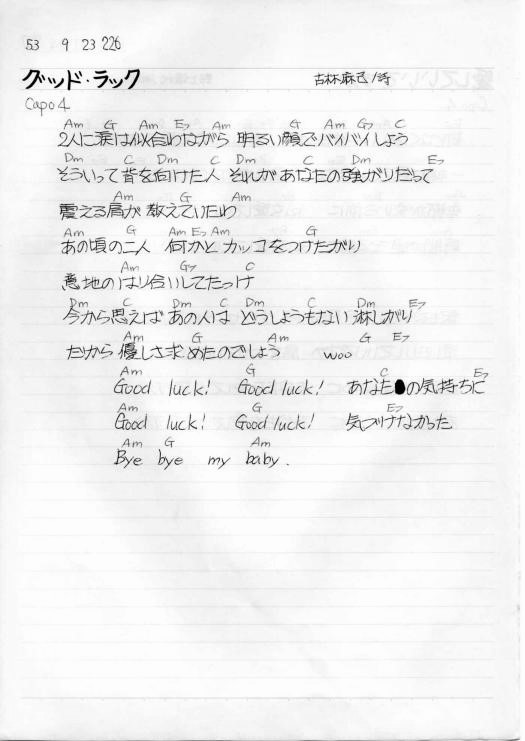 53 9 23 226
グッド・ラック 古林麻己/詩
Capo 4
Am G Am E7 Am G Am G7 C
2人に涙は似合わながら 明るい顔でバイバイしょう
Dm C Dm C Dm C Dm E7
そういって背を向けた人 それがあなたの強がりだって
Am G Am
震える肩が 教えていたわ
Am G Am E7 Am G
あの頃の二人 何かと カッコをつけたがり
Am G7 C
意地のはり合いしてたっけ
Dm C Dm C Dm C Dm E7
今から思えば あの人は どうしょうもない 淋しがり
Am G Am G E7
だから 優しさ求めたのでしょう woo
Am G C E7
Good luck! Good luck! あなたの気持ちに
Am G E7
Good luck! Good luck! 気づけなかった
Am G Am
Bye bye my baby.